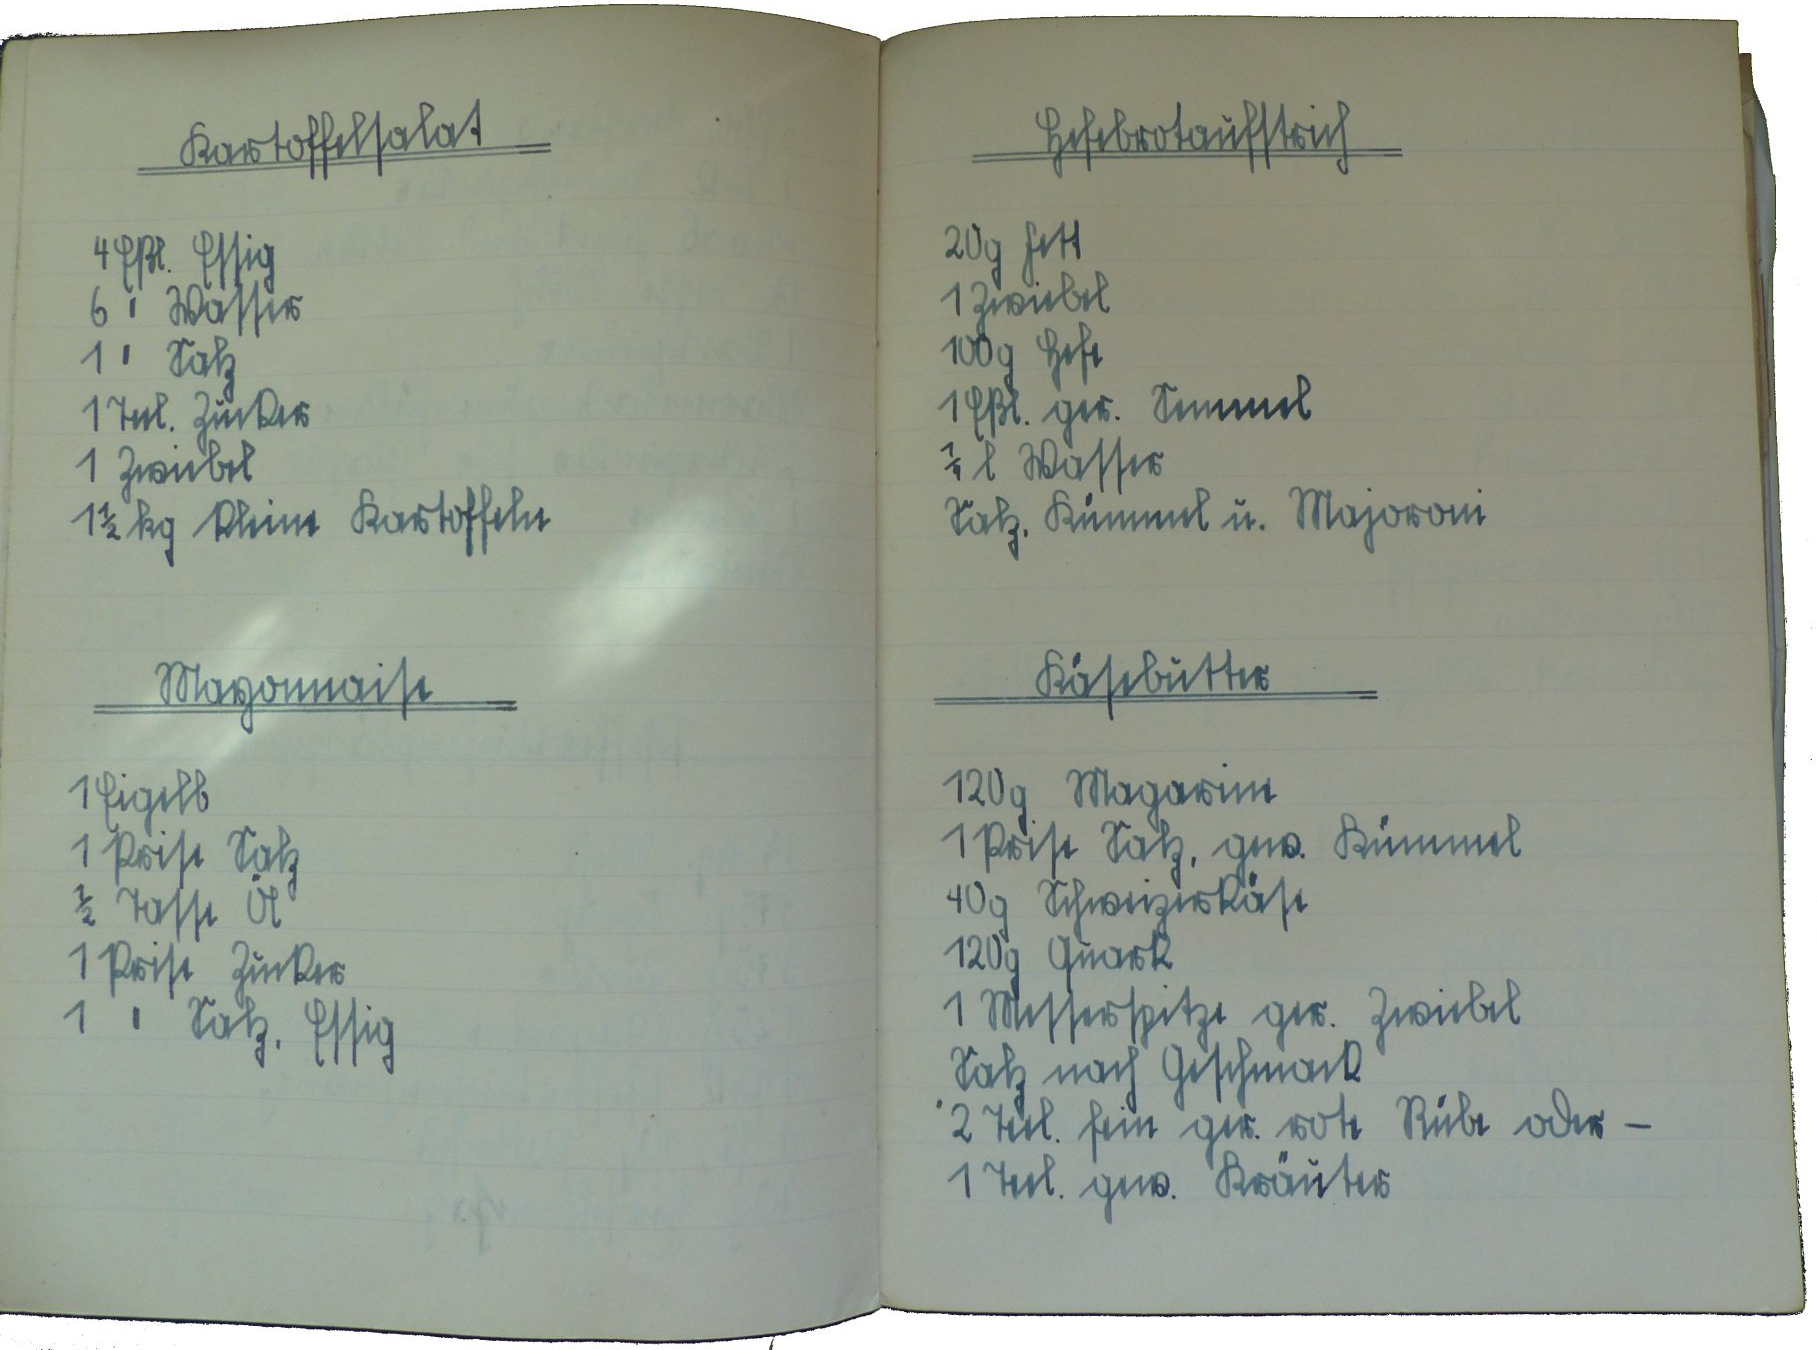 Kartoffelsalat
4 Eßl. Essig
6 " Wasser
1 " Salz
1 Teel. Zucker
1 Zwiebel
1½ kg kleine Kartoffeln
Mayonnaise
1 Eigelb
1 Prise Salz
½ Tasse Öl
1 Prise Zucker
1 " Salz, Essig
Hefebrotaufstrich
20g Fett
1 Zwiebel
100g Hefe
1 Eßl. ger. Semmel
¼ l Wasser
Salz, Kümmel u. Majoroni
Käsebutter
120g Magarine
1 Prise Salz, gew. Kümmel
40g Schweizerkäse
120g Quark
1 Messerspitze ger. Zwiebel
Salz nach Geschmack
2 Teel. fein ger. rote Rübe oder –
1 Teel. gew. Kräuter